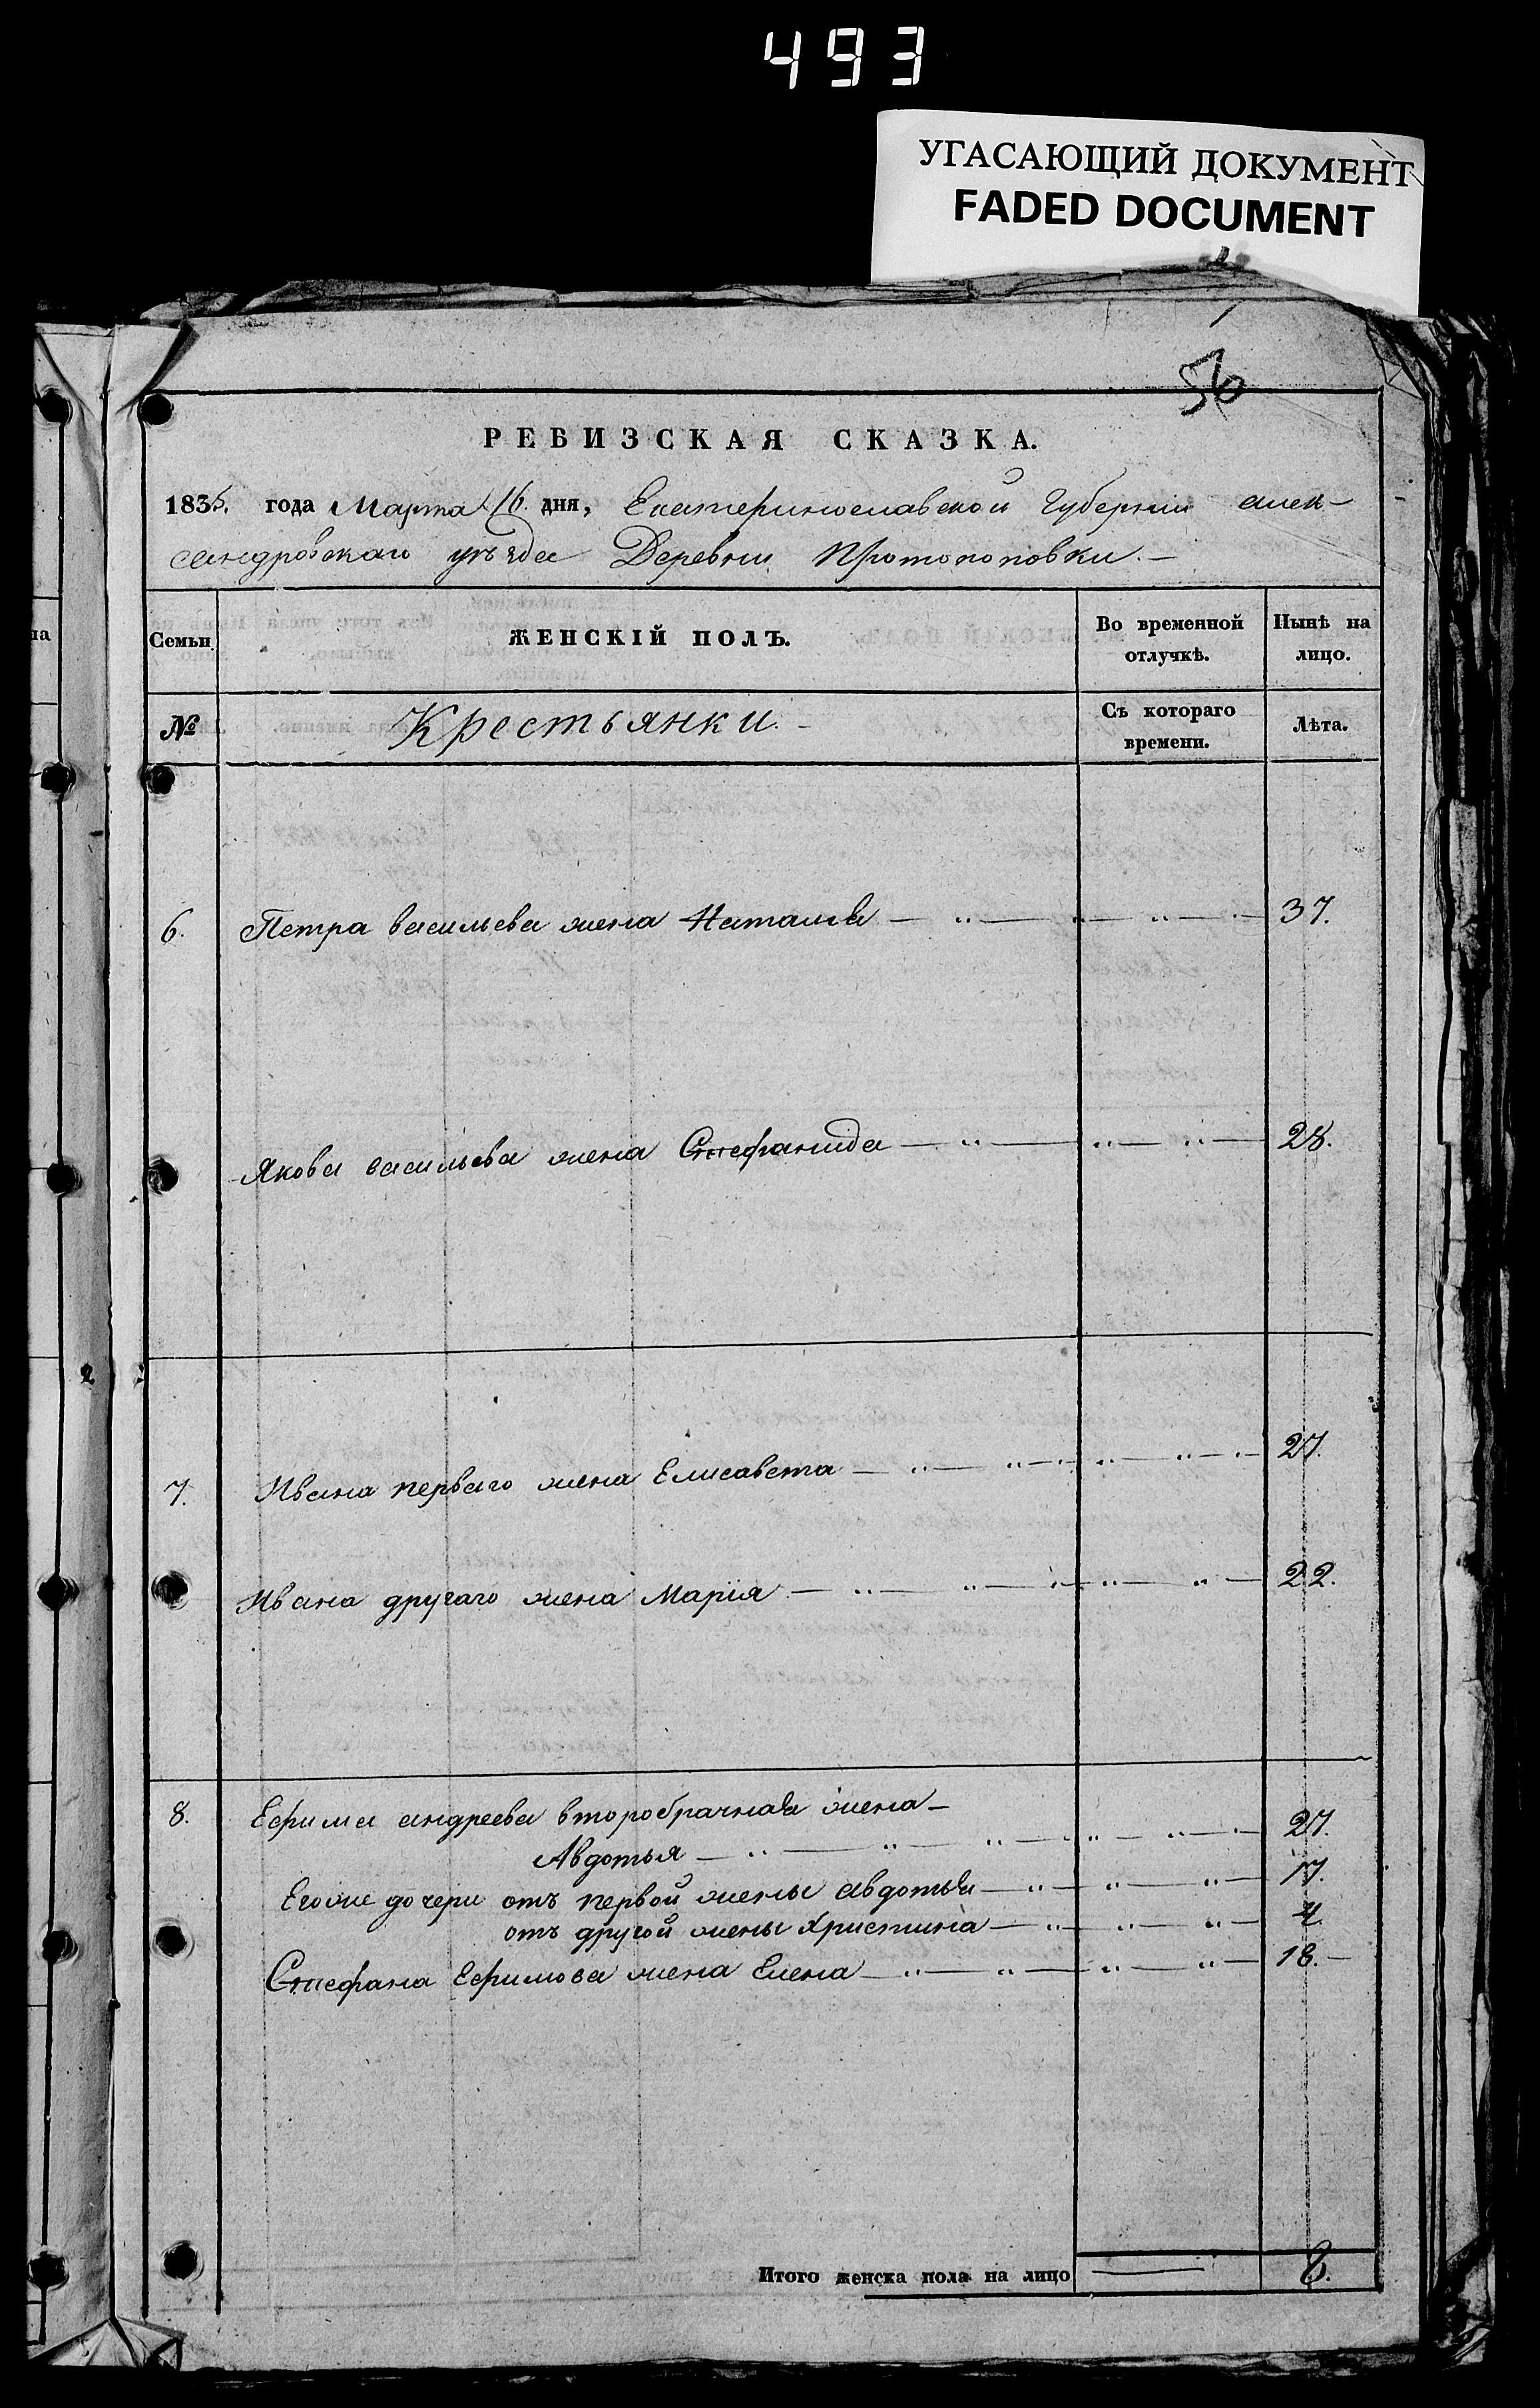 493
УГАСАЮЩИЙ ДОКУМЕНТ
FADED DOCUMENT
56
РЕВИЗСКАЯ СКАЗКА.
1835. года Марта 16. дня, Екатеринославской Губерніи алек-
сандровскаго уѣзда Деревни Протопоповки. —
Семьи
ЖЕНСКІЙ ПОЛЪ.
Во временной отлучкѣ.
Нынѣ на лицо.
№
Крестьянки. -
Съ котораго времени.
Лѣта.
6. Петра васильева жена Наталья — 37.
Якова васильева жена Стефанида — 28.
7. Ивана перваго жена Елисавета — 27.
Ивана другаго жена Марія — 22.
8. Ефима андреева второбрачная жена —
Авдотья — 27.
Егоже дочери отъ первой жены авдотья — 17.
отъ другой жены Христина — 4.
Стефана Ефимова жена Елена — 18. —
Итого женска пола на лицо — 8.